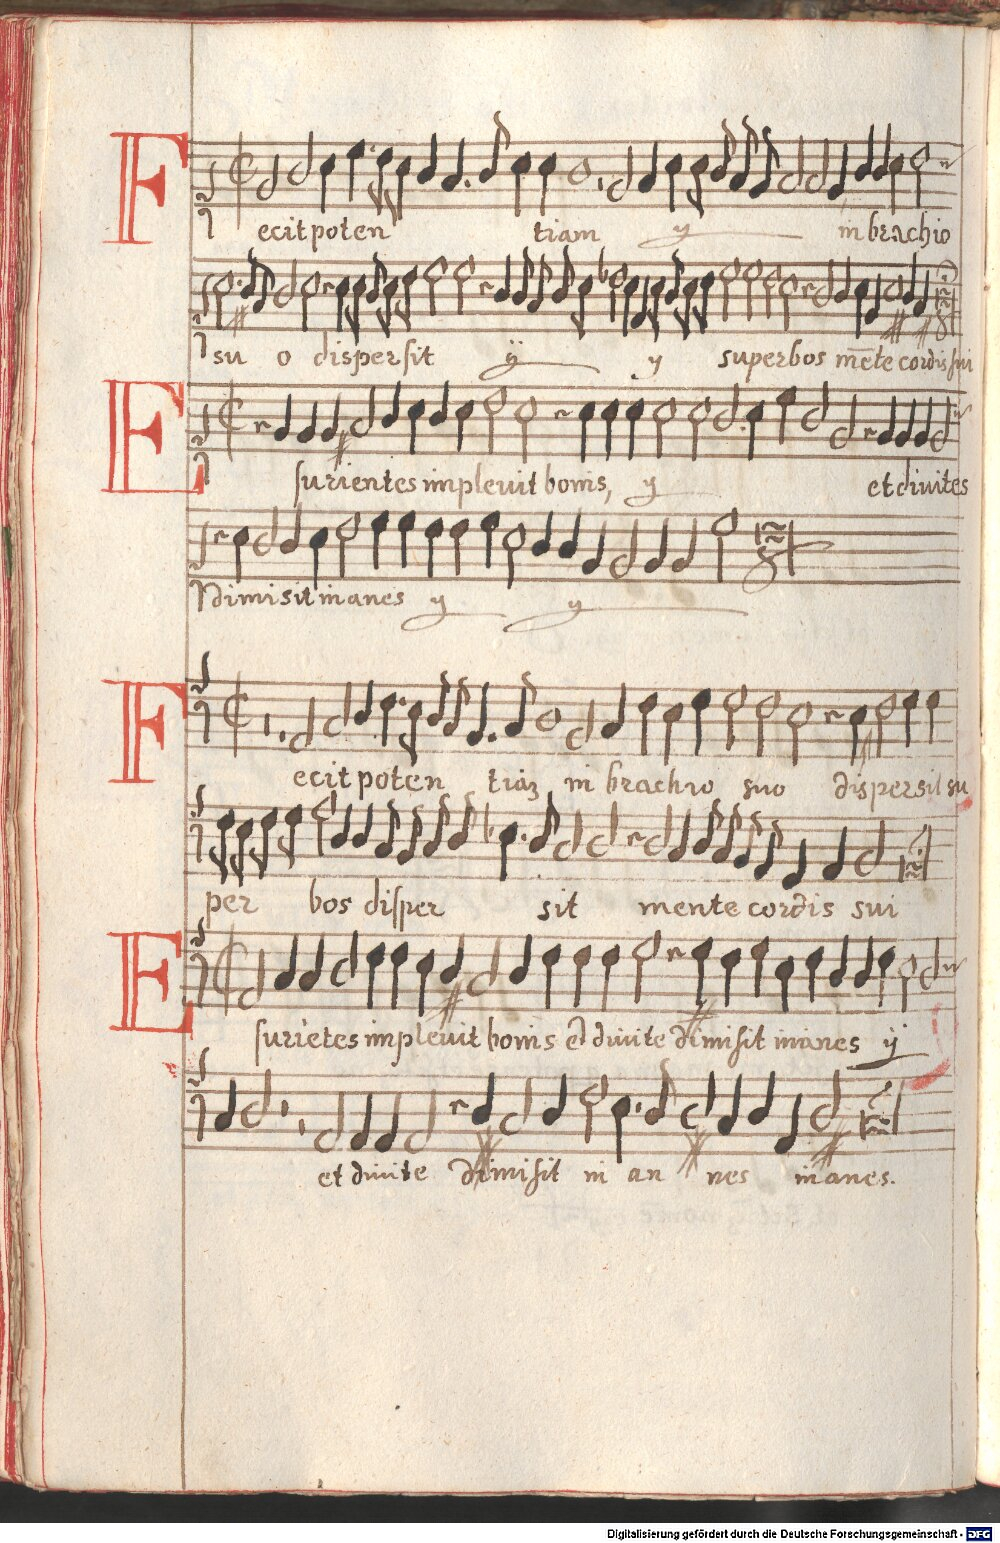 Fecit poten tiam ÿ in brachio
su o dispersit ÿ ÿ superbos mēte cordis sui
Esurientes implevit bonis, ÿ et divites
dimisit inanes ÿ ÿ
Fecit poten tiaʒ in brachio suo dispersit su
per bos disper sit mente cordis sui
Esuriētes implevit bonis et divite dimisit inanes ÿ
et divite dimisit in an nes inanes.
Digitalisierung gefördert durch die Deutsche Forschungsgemeinschaft - DFG